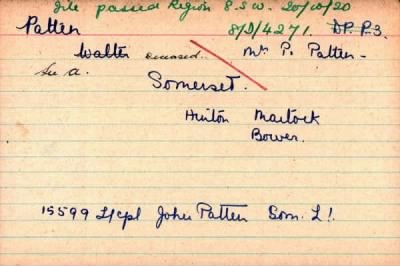 file passed Region 8. S.W. 20/10/20
Patten 8/D/4271. D.P. P.3.
Walter deceased. Mr P. Patten -
See a.
Somerset.
Hinton Martock
Bower.
15599 L/cpl John Patten Som. L!